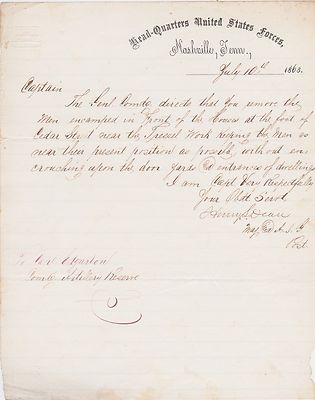 Head-Quarters United States Forces,
Nashville, Tenn.,
July 10th 1863.
Captain
The Genl Comdg directs that you remove the
Men encamped in Front of the Houses at the foot of
Cedar Street near the Tressel Work keeping the Men as
near their present position as possible without en
croaching upon the door yards & entrances of dwellings
I am Capt Very Respectfully
Your Obdt Servt
Henry S Dean
Maj &
Post
To Capt
Comdg Artillery Reserve